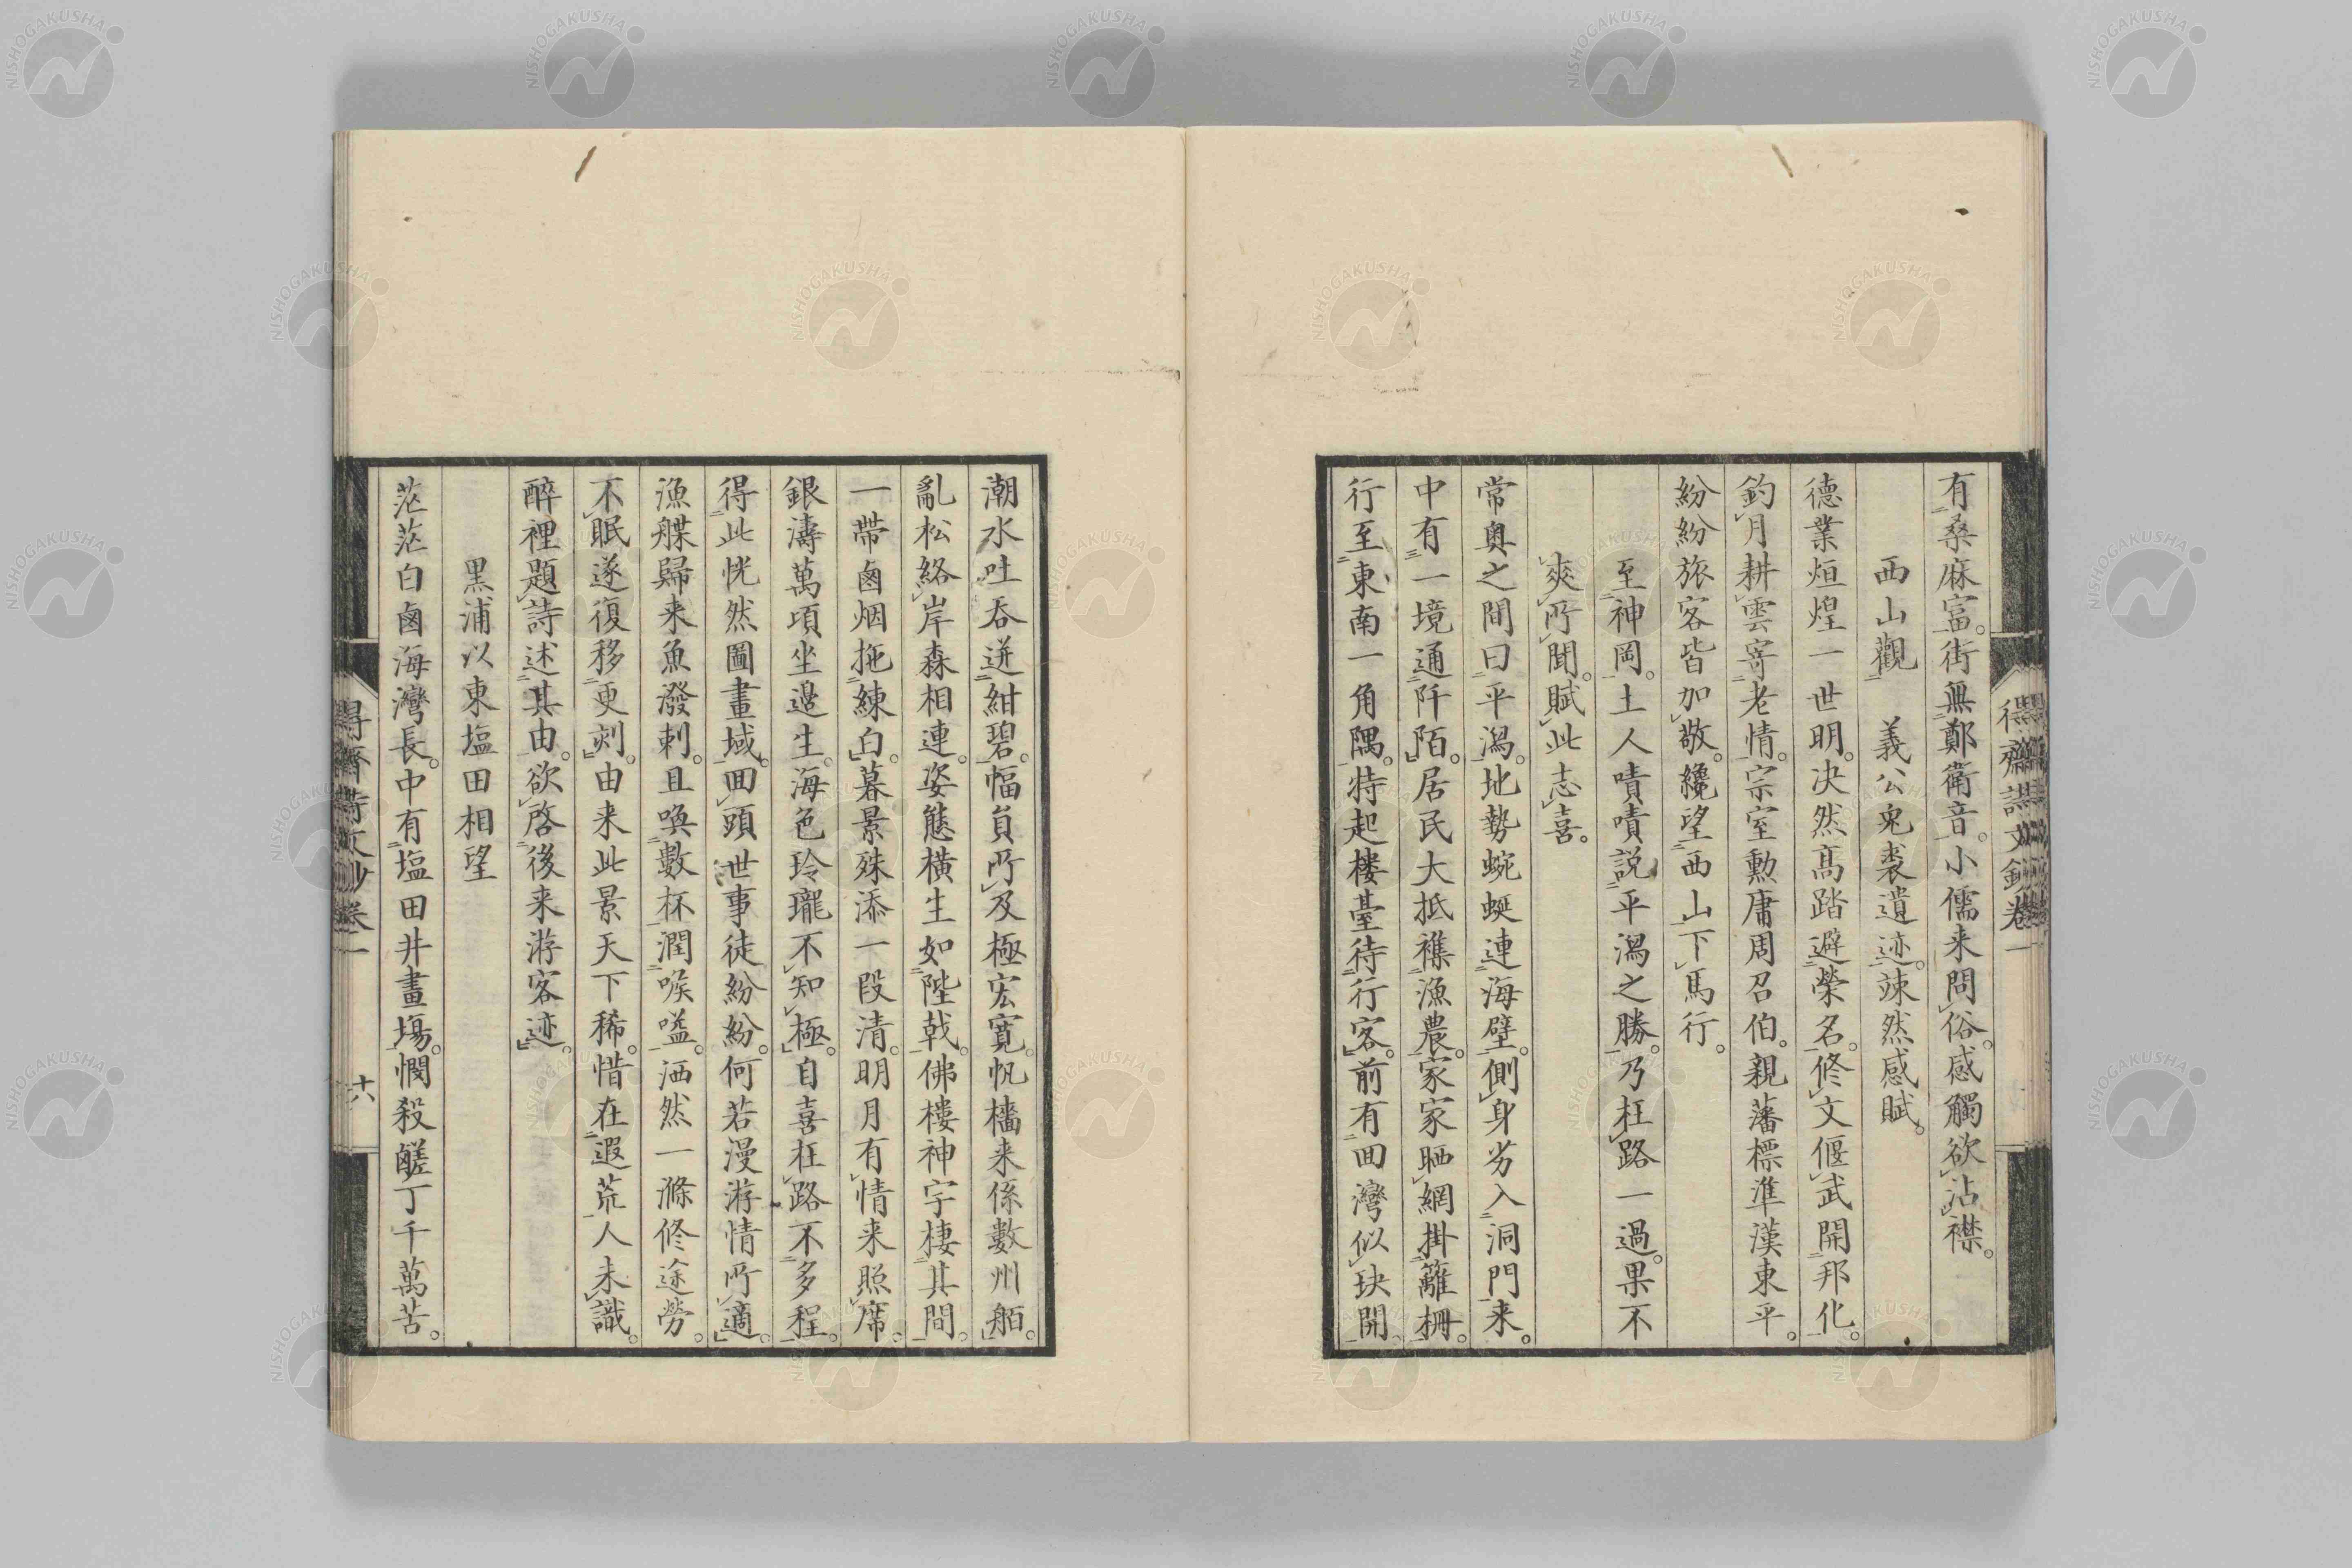 有桑麻富。街無鄭衛音。小儒来問俗。感觸欲沾襟。
西山觀義公兎裘遺迹。竦然感賦。
德業烜煌一世明。決然高踏避榮名。修文偃武開邦化。
釣月耕雲寄老情。宗室勲庸周召伯。親藩標準漢東平。
紛紛旅客皆加敬。纔望西山下馬行。
至神岡。土人嘖嘖説平潟之勝。乃枉路一過。果不
爽所聞。賦此志喜。
常奥之間曰平潟。地勢蜿蜒連海壁。側身劣入洞門来。
中有一境通阡陌。居民大抵襍漁農。家家晒網掛籬柵。
行至東南一角隅。特起樓臺待行客。前有回灣似玦開。
潮水吐呑逬紺碧。幅員所及極宏寛。帆檣来係數州舶。
亂松絡岸森相連。姿態横生如陛戟。佛樓神宇棲其間。
一帶鹵烟拖練白。暮景殊添一段清。明月有情来照席。
銀濤萬頃坐邉生。海色玲瓏不知極。自喜枉路不多程。
得此恍然圖畫域。回頭世事徒紛紛。何若漫游情所適。
漁艓歸来魚潑剌。且喚數杯潤喉嗌。洒然一滌修途勞。
不眠遂復移更刻。由来此景天下稀。惜在遐荒人未識。
醉裡題詩述其由。欲啓後来游客迹。
黒浦以東塩田相望
茫茫白鹵海灣長。中有塩田井畫塲。憫殺醝丁千萬苦。
十六